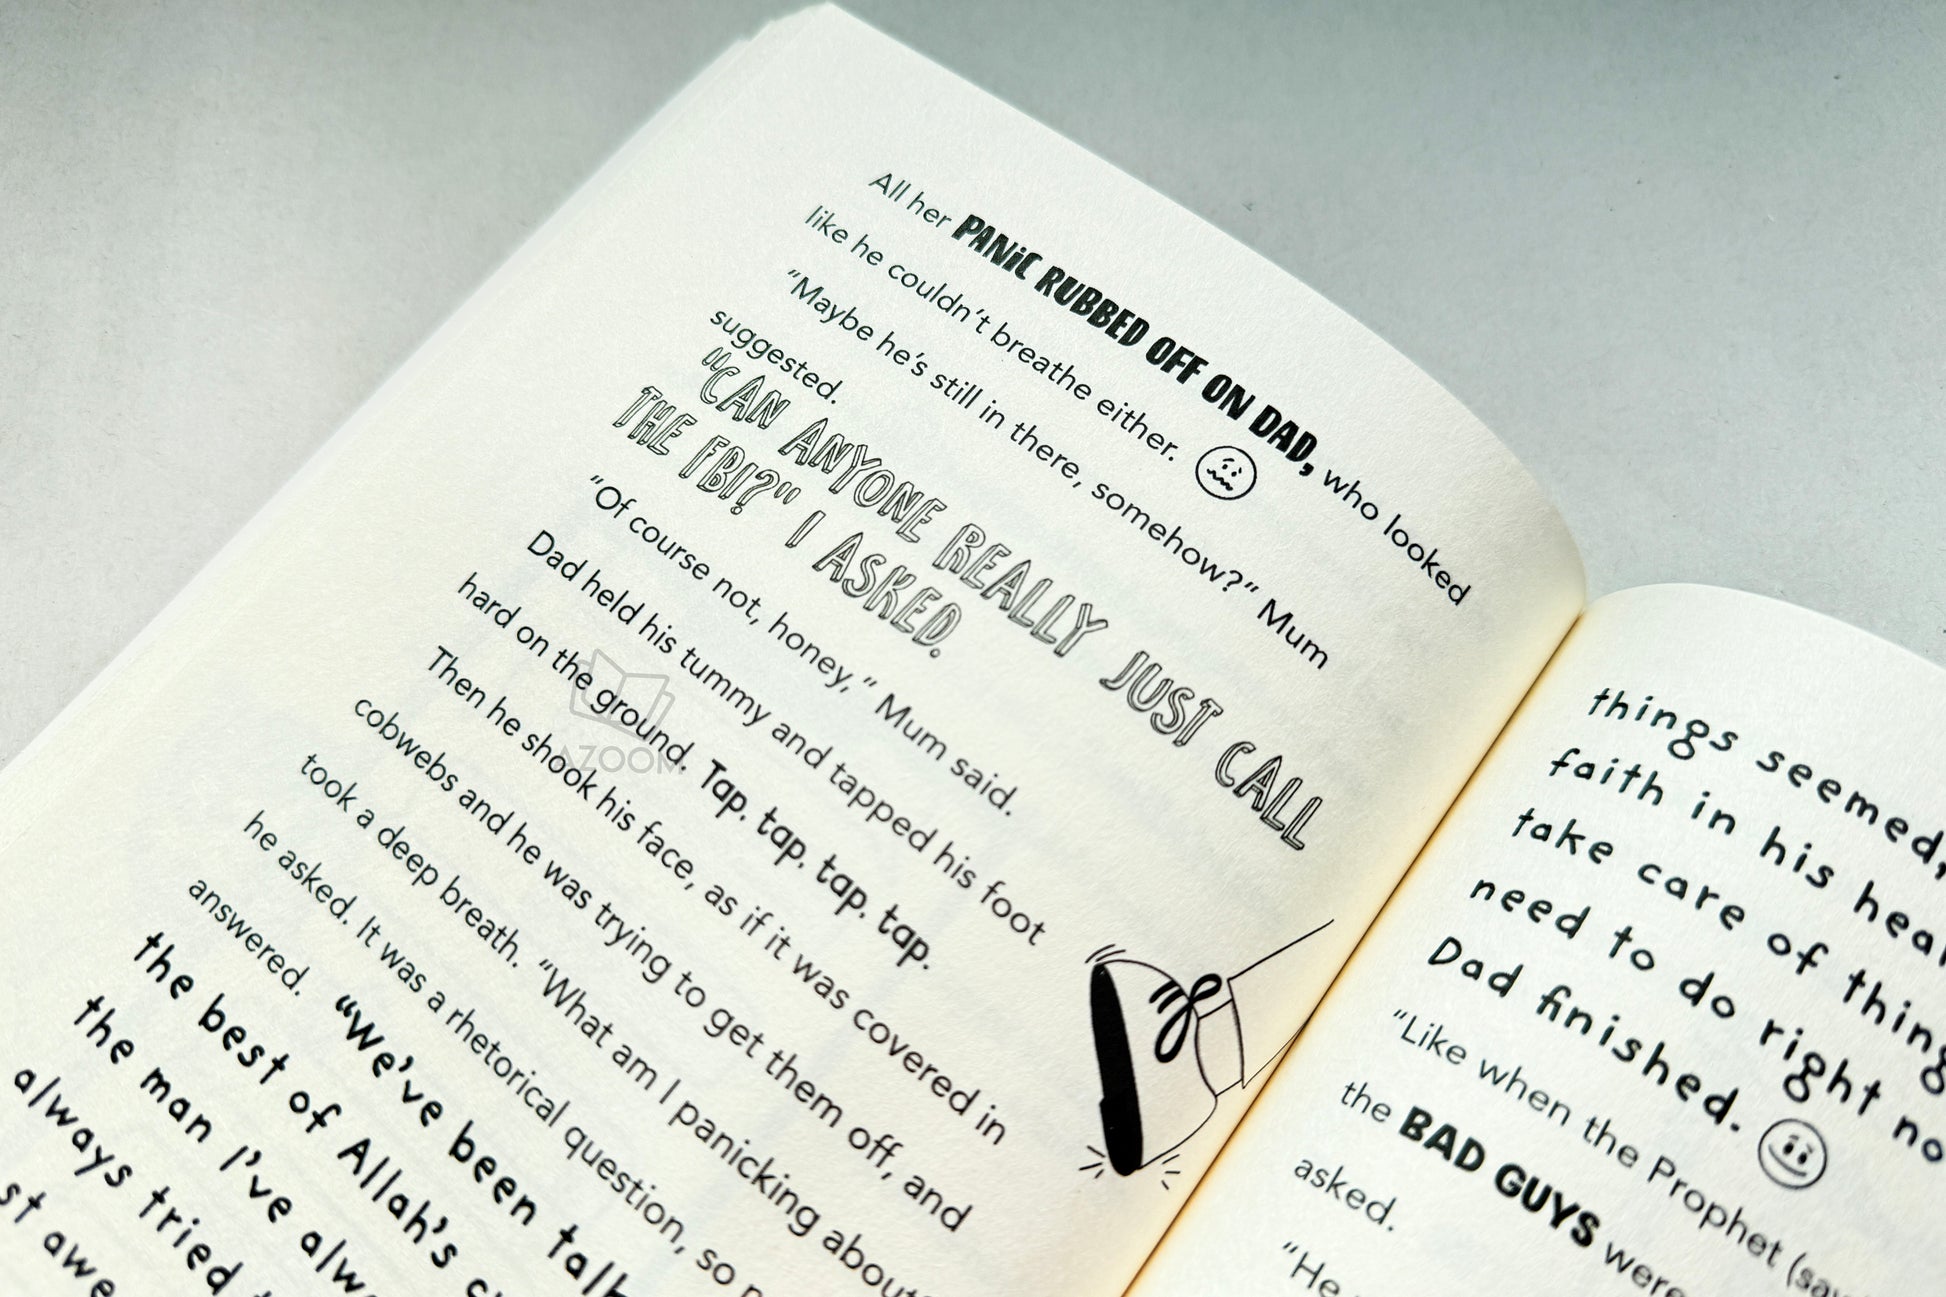 All her PANiC RUBBED OFF ON DAD, who looked
like he couldn't breathe either.
"Maybe he's still in there, somehow?" Mum
suggested.
"CAN ANYONE REALLY JUST CALL
THE FBI?" I ASKED.
"Of course not, honey," Mum said.
Dad held his tummy and tapped his foot
hard on the ground. Tap. tap. tap. tap.
Then he shook his face, as if it was covered in
cobwebs and he was trying to get them off, and
took a deep breath. "What am I panicking about
he asked. It was a rhetorical question, so
answered. "We've been
the best of Allah's
the man I've
always tried
AZOOM
things seemed,
faith in his
take care of
need to do right
Dad finished.
"Like when the Prophet
the BAD GUYS were
asked.
"He